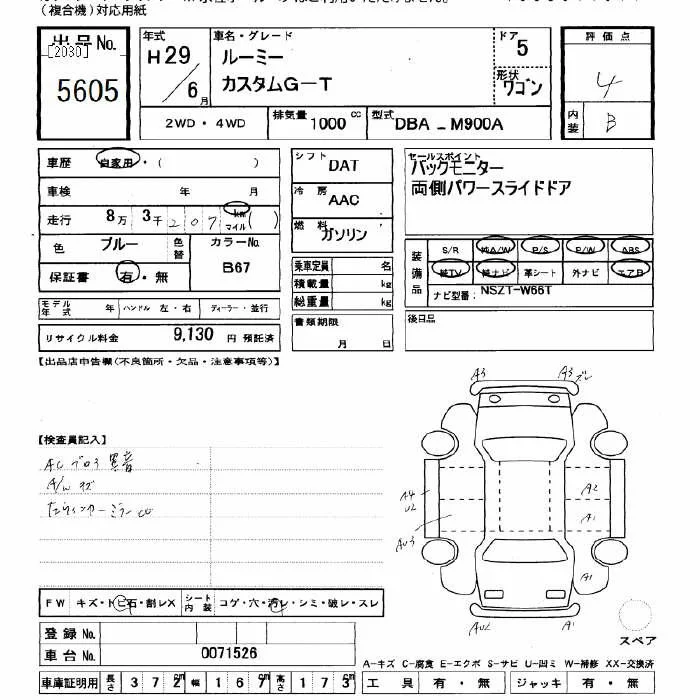 (複合機)対応用紙
出品No.
[2030]
5605
年式
H29
/6月
車名・グレード
ルーミー
カスタムG-T
ドア
5
形状
ワゴン
評価点
4
内装
B
2WD・4WD
排気量 1000 cc
型式 DBA - M900A
車歴 自家用・( )
車検 年 月
走行 8万 3千 207 km マイル ( )
色 ブルー 色替 カラーNo.
B67
保証書 有・無
シフト DAT
冷房 AAC
燃料 ガソリン
乗車定員 名
積載量 kg
総重量 kg
書類期限
月 日
セールスポイント
バックモニター
両側パワースライドドア
装備品
S/R 純A/W P/S P/W ABS
純TV 純ナビ 革シート 外ナビ エアB
ナビ型番: NSZT-W66T
後日品
モデル年式 年 ハンドル 左・右 ディーラー・並行
リサイクル料金 9,130 円 預託済
【出品店申告欄(不良箇所・欠品・注意事項等)】
【検査員記入】
AC ブロア 異音
A/W キズ
A3 A3 ズレ
A4
U2
AU3
A2
A1
A1
AU2 A1
スペア
FW キズ・トビ石・割レX シート内装 コゲ・穴・汚レ・シミ・破レ・スレ
登録No.
車台No. 0071526
車庫証明用 長さ 372cm 幅 167cm 高さ 173cm
A-キズ C-腐食 E-エクボ S-サビ U-凹ミ W-補修 XX-交換済
工具 有・無 ジャッキ 有・無